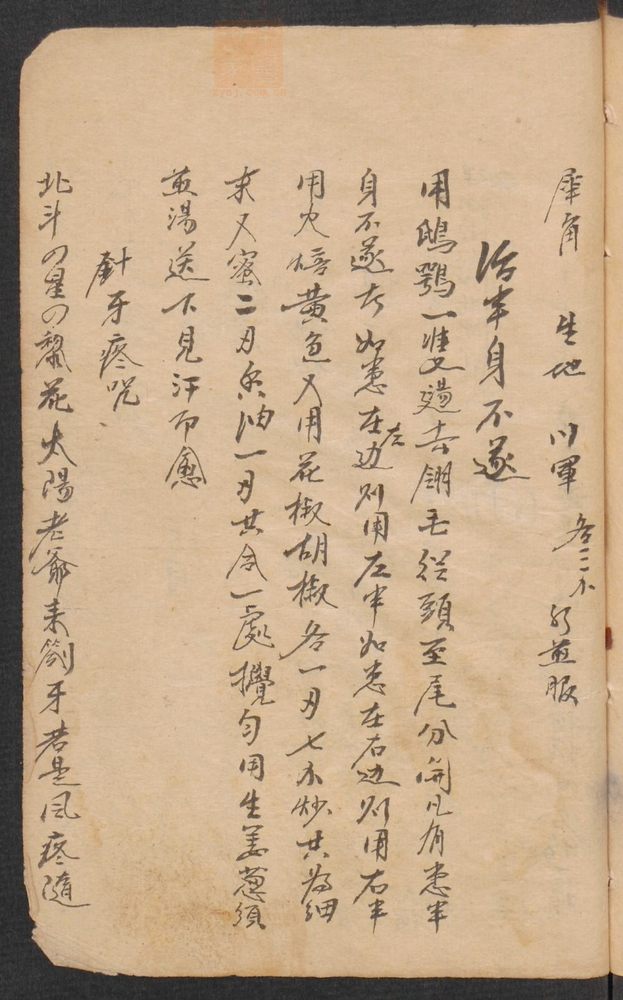 犀角 生地 川軍 各三个 水煎服
治半身不遂
用鴟鴞一隻燙去翎毛從頭至尾分開凡有患半
身不遂者如患在左边则用左半如患在右边则用右半
用火焙黄色又用花椒胡椒各一刄七个炒共為細
末又蜜二刄香油一刄共合一處攪匀用生姜葱須
煎湯送下見汗而愈
針牙疼咒
北斗の星の黎花太陽老爺来 牙若是风疼隨